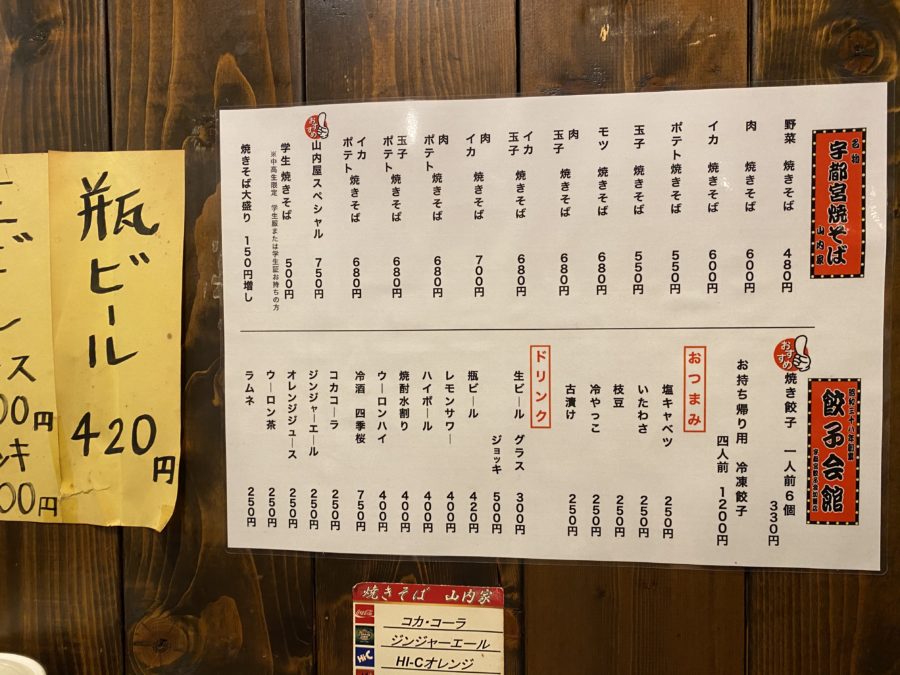 名物
宇都宮焼そば
山内家
野菜 焼きそば 480円
肉 焼きそば 600円
イカ 焼きそば 600円
ポテト 焼きそば 550円
玉子 焼きそば 550円
モツ 焼きそば 680円
肉 玉子 焼きそば 680円
イカ 玉子 焼きそば 680円
肉 イカ 焼きそば 700円
肉 ポテト 焼きそば 680円
玉子 ポテト 焼きそば 680円
イカ ポテト 焼きそば 680円
おすすめ
山内屋スペシャル 750円
学生 焼きそば 500円
※中高生限定 学生服または学生証お持ちの方
焼きそば大盛り 150円増し
昭和三十八年創業
餃子会館
宇都宮餃子会加盟店
おすすめ
焼き餃子 一人前6個 330円
お持ち帰り用 冷凍餃子
四人前 1200円
おつまみ
塩キャベツ 250円
いたわさ 250円
枝豆 250円
冷やっこ 250円
古漬け 250円
ドリンク
生ビール グラス 300円
ジョッキ 500円
瓶ビール 420円
レモンサワー 400円
ハイボール 400円
焼酎水割り 400円
ウーロンハイ 400円
冷酒 四季桜 750円
コカコーラ 250円
ジンジャーエール 250円
オレンジジュース 250円
ウーロン茶 250円
ラムネ 250円
瓶ビール
420円
00円
00円
焼きそば 山内家
コカ・コーラ
ジンジャーエール
Hi-C
HI-Cオレンジ